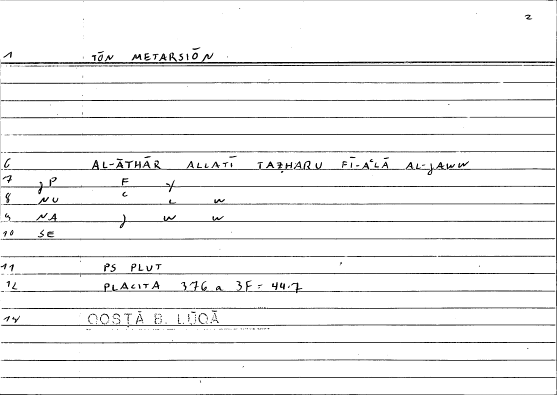 2
1 TŌN METARSIŌN
6 AL-ĀTHĀR ALLATĪ TAẒHARU FĪ-AʿLĀ AL-JAWW
7 JP F Y
8 NU C L W
9 NA J W W
10 SE
11 PS PLUT
12 PLACITA 376 a 3F = 44.7
14 QOSṬĀ B. LŪQĀ